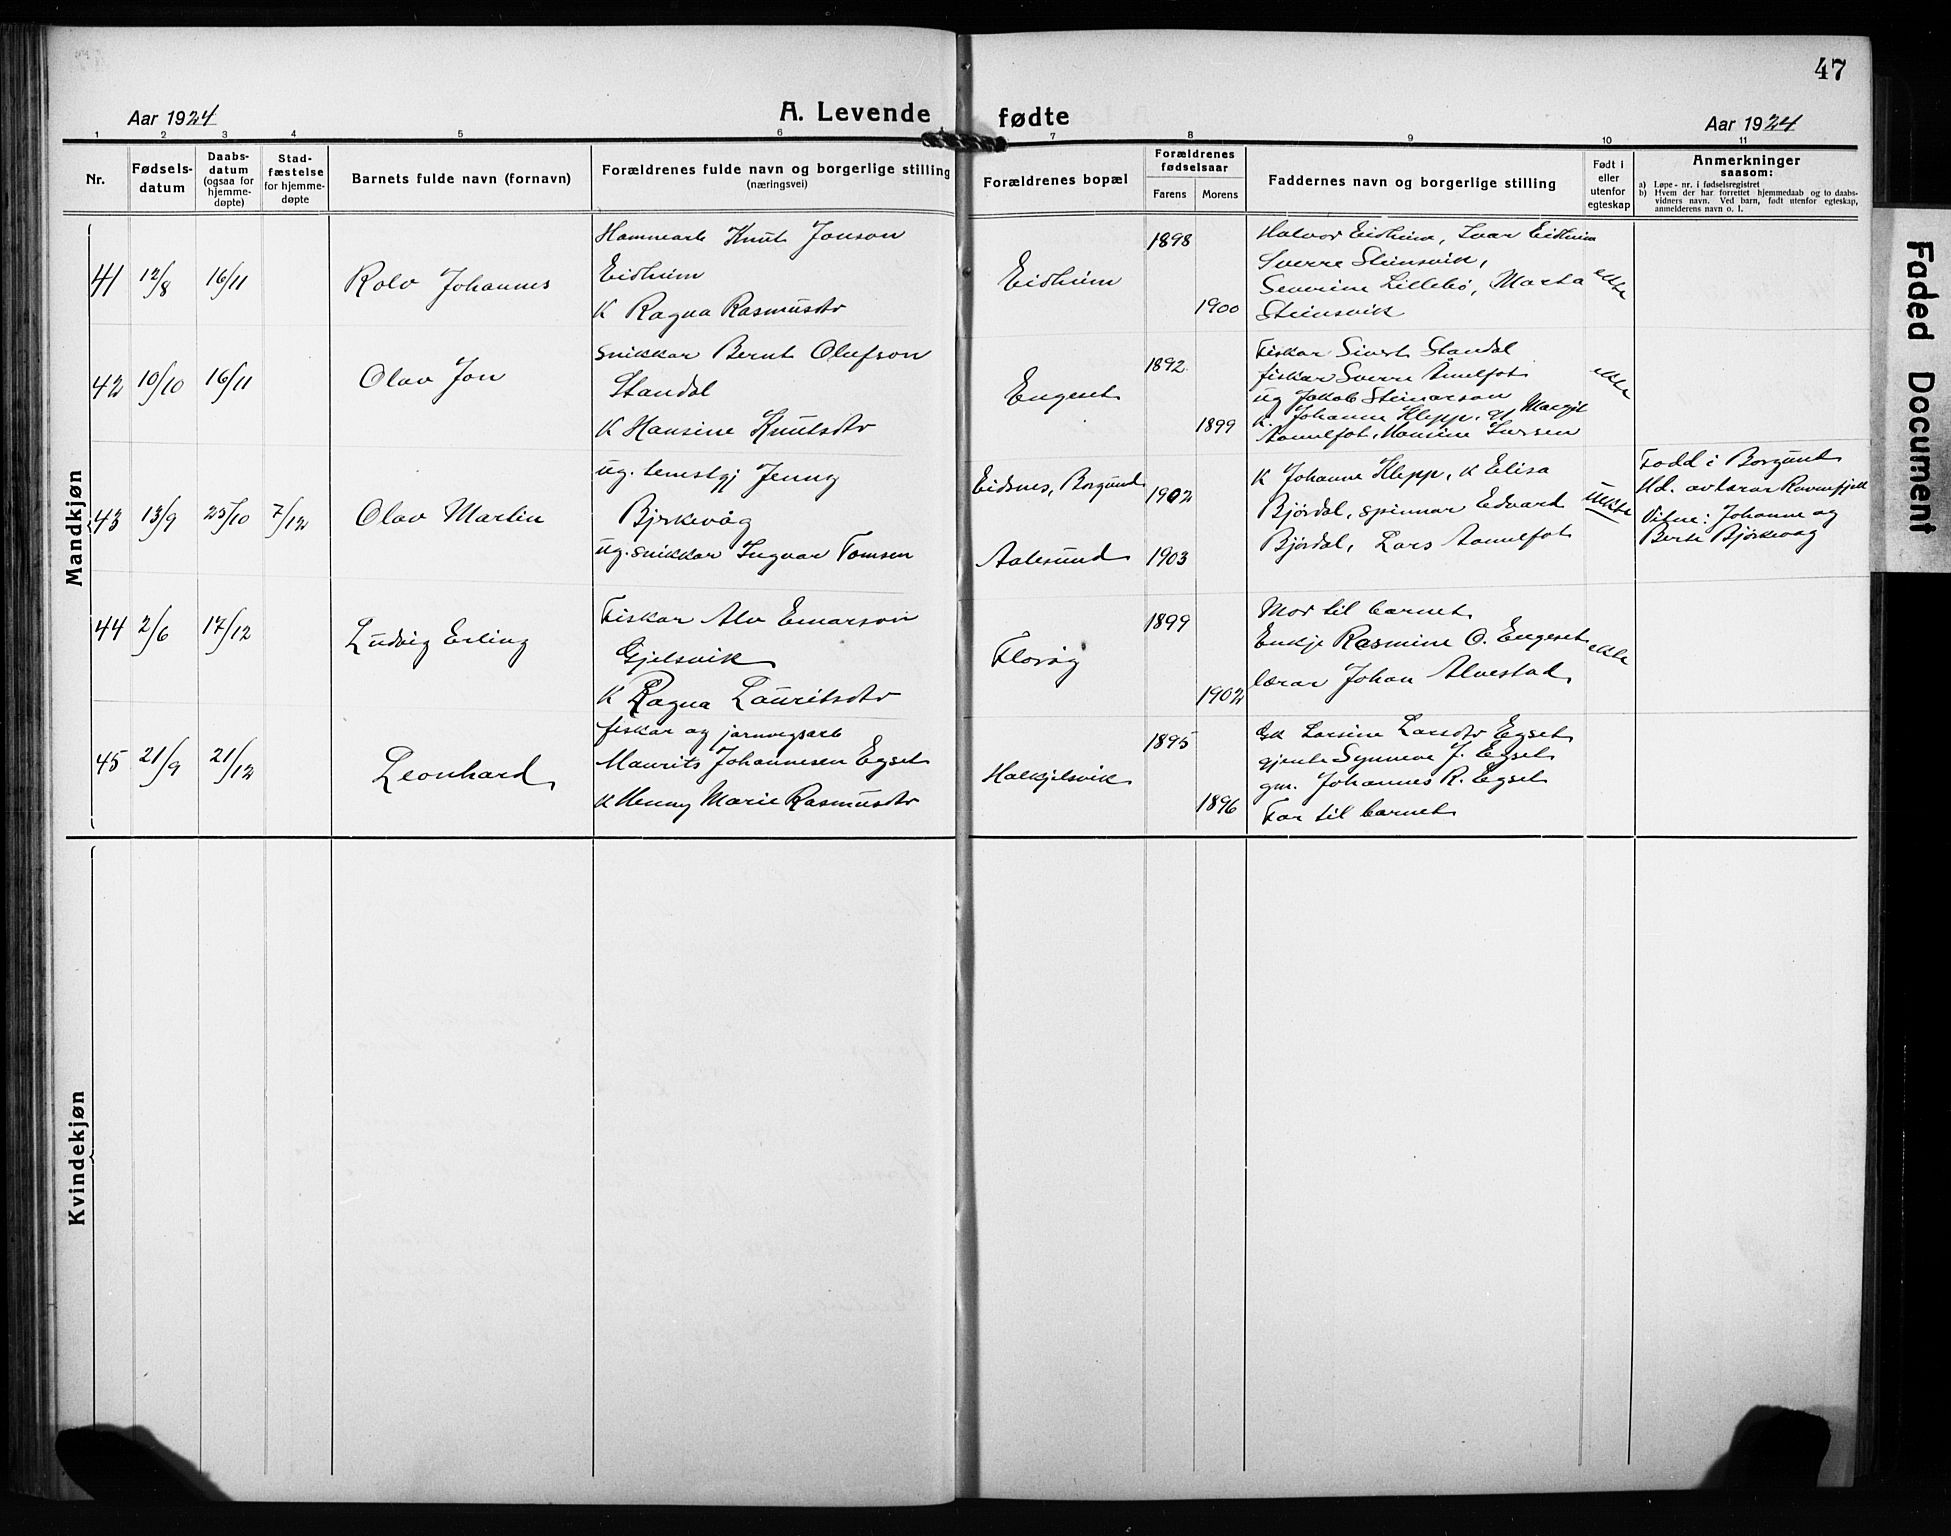 47
Aar 1924
A. Levende fødte
Aar 1924
1 2 3 4 5 6 7 8 9 10 11
Nr.
Fødsels-
datum
Daabs-
datum
(ogsaa for
hjemme-
døpte)
Stad-
fæstelse
for hjemme-
døpte
Barnets fulde navn (fornavn)
Forældrenes fulde navn og borgerlige stilling
(næringsvei)
Forældrenes bopæl
Forældrenes
fødselsaar
Farens
Morens
Faddernes navn og borgerlige stilling
Født i
eller
utenfor
egteskap
Anmerkninger
saasom:
a) Løpe-nr. i fødselsregistret
b) Hvem der har forrettet hjemmedaab og to daabs-
vidners navn. Ved barn, født utenfor egteskap,
anmelderens navn o. l.
Mandkjøn
41
12/8
16/11
Rolv Johannes
Hamnearb Knut Jonson
Eidheim
K Ragna Rasmusdtr
Eidheim
1898
1900
Halvor Eidheim, Ivar Eidheim
Sverre Steinsvik,
Severine Lillebö, Marta
Steinsvik
ekte
42
10/10
16/11
Olav Jon
Snikkar Bernt Olufson
Standal
K Hansine Knutsdtr
Engeset
1892
1899
Fiskar Sivert Standal
fiskar Sverre Åmelfot
ug Jakob Steinarson
K. Johanne Klepp, Margit
Aamelfot, Hansine Iversen
ekte
43
13/9
25/10
7/12
Olav Martin
ug. tenestgj Jenny
Bjrkevåg
ug. snikkar Ingvar Tomsen
Eidsnes, Borgund
Aalesund
1902
1903
K Johanne Klepp, K Elisa
Björdal, spinnar Edvard
Björdal, Lars Aamelfot
uekte
Fodd i Borgund
Hd. av lærar Ravnefjell
Vitne: Johanne og
Berte Bjørkevåg
44
2/6
17/12
Ludvig Erling
Fiskar Alv Einarson
Gjelsvik
K Ragna Lauritsdtr
Florøy
1899
1902
Mor til barnet
Enkje Rasmine O. Engeset
lærar Johan Alvestad
ekte
45
21/9
21/12
Leonhard
fiskar og jarnvegsarb
Maurits Johannesen Egset
K Henny Marie Rasmusdtr
Halkjelsvik
1895
1896
Gk Larsine Larsdtr Egset
gjente Synneve J. Egset
gm. Johannes R. Egset
Far til barnet
Kvindekjøn
Faded Document